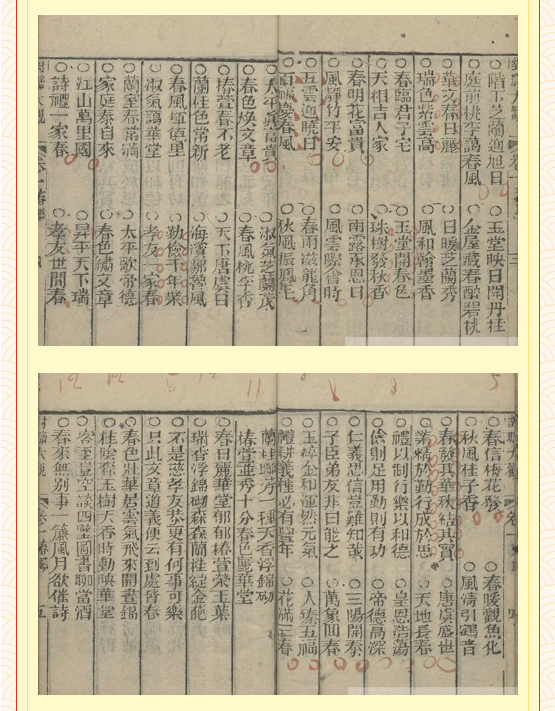 階下芝蘭迎旭日 玉堂映日開丹桂
庭前桃李靄春風 金屋藏春醉碧桃
華文春日麗 日暖芝蘭秀
瑞色紫雲高 風和翰墨香
春臨君子宅 玉堂開春色
天相吉人家 珠樹發秋香
春明花富貴 雨露承恩日
風靜竹平安 風雲際會時
五雲迎曉日 春雨滋龍角
百福慶春風 秋風振鳳毛
富貴 淑氣芝蘭茂
春色煥文章 春風桃李香
椿萱春不老 天下唐虞日
蘭桂色常新 海濱鄒魯風
春風里 勤儉千年業
淑氣靄華堂 孝友一家春
蘭室春常滿 太平歌帝德
家庭泰自來 春色繡文章
江山萬里國 昇平天下瑞
詩禮一家春 孝友世間春
春信梅花發 春暖觀魚化
秋風桂子香 風清引鶴音
春發其華秋結其實 唐虞盛世
業精於勤行成於思 天地長春
禮以制行樂以和德 皇恩浩蕩
儉則足用勤則有功 帝德高深
仁義思信豈難知哉 三陽開泰
子臣弟友非曰能之 萬象回春
玉粹金和渾然元氣 人臻五福
禮耕義種必有豐年 花滿三春
蘭桂聯芳一種天香浮錦砌
椿萱並秀十分春色靄華堂
春日麗華堂郁郁椿萱榮玉葉
瑞香浮錦砌森森蘭桂綻金葩
不是慈孝友恭更有何事可樂
只此文章道義便云到處皆春
春色壯華居雲氣飛來開畫錦
桂陰森玉樹天香時動映華堂
客至莫空談四壁圖書聊當酒
春來無別事一簾風月欲催詩